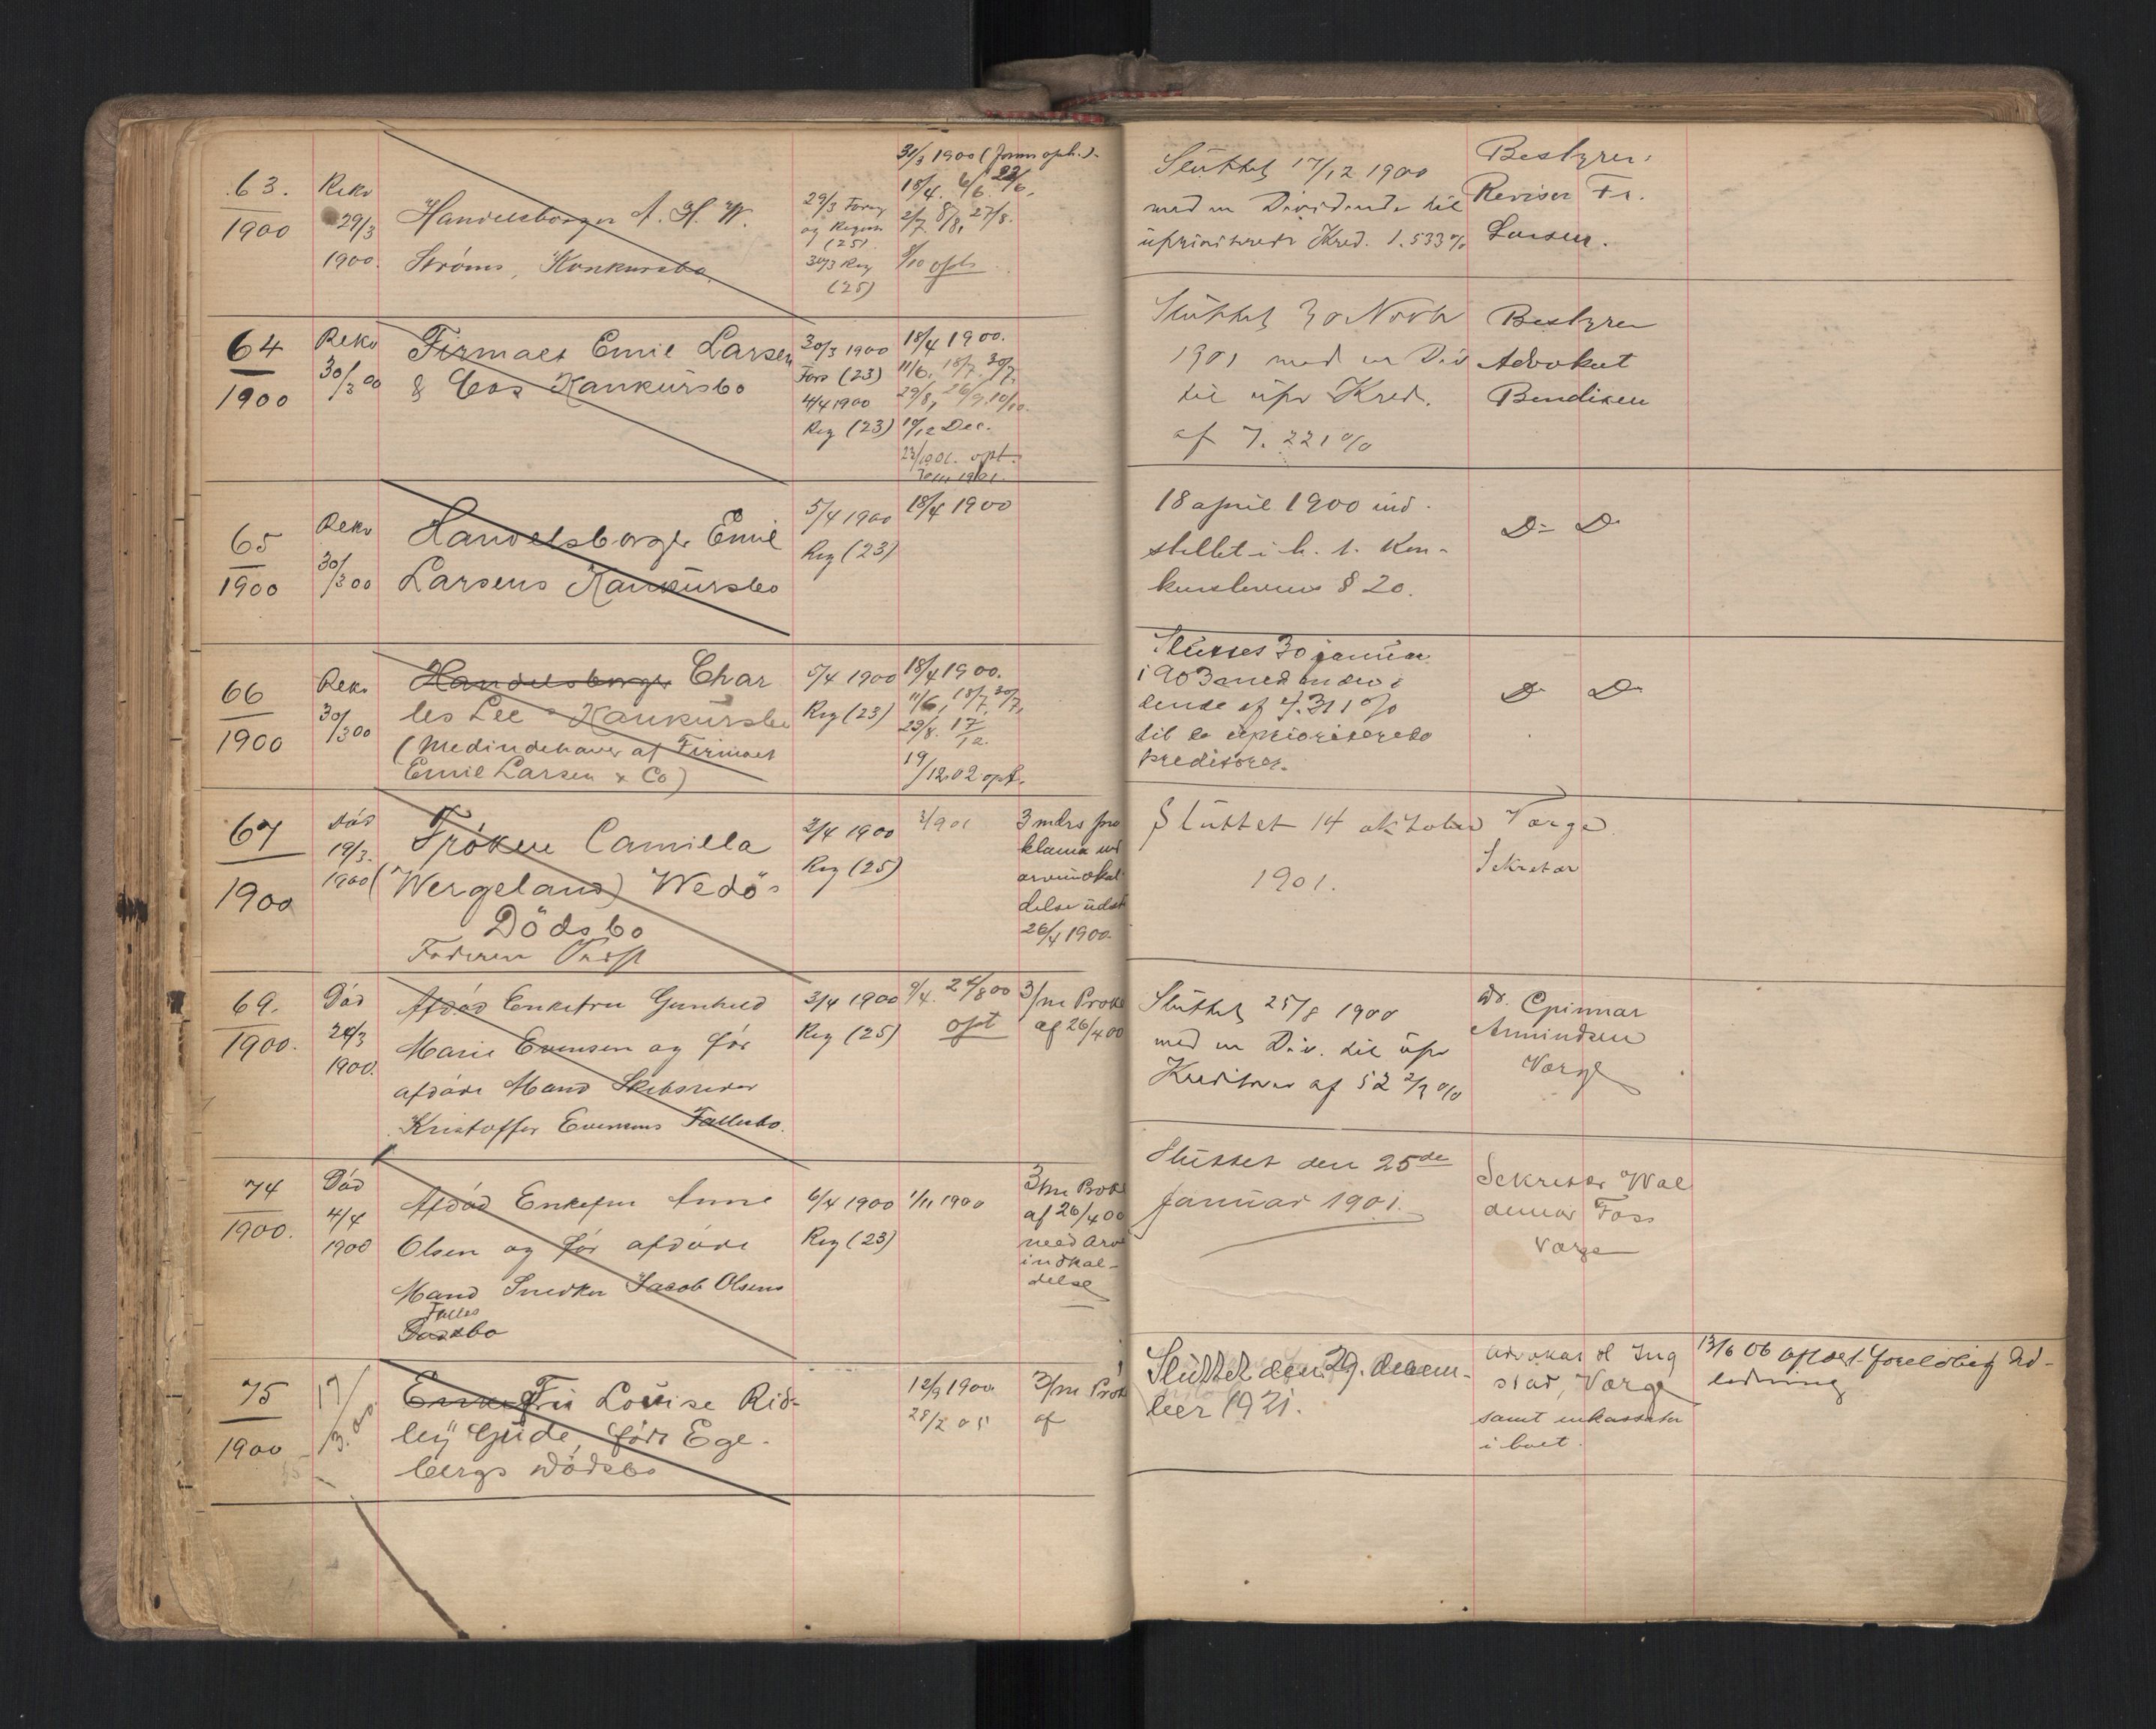 63.
1900
Reko
29/3
1900.
Handelsborger A. H. W.
Strøms, Konkursbo.
29/3
og
(25)
30/3 Reg
(25)
31/3 1900 (
18/4. 6/6. 22/6.
2/7 8/8, 27/8.
9/10 opt
Sluttet 17/12 1900
med en Dividende til
upriviterede Kred. 1.533%
Bestyrer:
Revisor Fr.
Larsen.
64
1900
Reko
30/3 00
Firmaet Emil Larsen
& Cos Konkursbo
30/3 1900
Fors (23)
4/4 1900
Reg (23)
18/4 1900.
11/6, 18/7, 30/7,
29/8, 26/9. 10/10.
19/12 Dec.
opt.
1901.
Sluttet 30 Novb
1901 med en Div
til upr Kred.
af 7. 221%
Bestyrer
Advokat
Bendixen
65
1900
Reko
30/3 00
Handelsborger Emil
Larsens Konkursbo
5/4 1900
Reg (23)
18/4 1900
18 april 1900 ind-
stillet i h. t. Kon-
kurslovens § 20.
Do Do
66
1900
Reko
30/3 00
Handelsborger Char
les Lee Konkursbo
(Medindehaver af Firmaet
Emil Larsen & Co)
5/4 1900
Reg (23)
18/4 1900.
11/6, 18/7, 30/7,
29/8. 17/12.
19/12.02 opt.
Sluttes 30 januar
1903 med en divi
dende af 4.311%
til de uprioriterede
kreditorer.
Do Do
67
1900
Död
19/3.
1900
Frøken Camilla
(Wergeland) Wedö's
Dödsbo
Faderen Præst
3/4 1900
Reg (25)
3/9 01
3 mdrs pro
klama med
arveindkal
delse udst
26/4 1900.
Sluttet 14 oktober
1901.
Værge
Sekretær
69.
1900.
Död
24/3
1900.
Afdød Enkefru Gunhild
Marie Evensen og før
afdøde Mand Skibsreder
Kristoffer Evensens Fællesbo.
3/4 1900
Reg (25)
9/4. 24/8 00
opt
3/m Prokl
af 26/4 00
Sluttet 25/8 1900
med en Div. til upr
Kreditorer af 52 2/3 %
Amundsen
Værge
74
1900.
Död
4/4
1900
Afdød Enkefru Anne
Olsen og før afdøde
Mand Snedker Jacob Olsens
Fælles
Dødsbo
6/4 1900
Reg (23)
1/11 1900
3/m Prokl
af 26/4 00
med Arve
indkal-
delse
Sluttet den 25de
Januar 1901.
Sekretær Wal
demar Foss
Værge
75
1900
17/3.00.
Enkefru Louise Rid-
ley Gude, født Ege-
bergs Dødsbo
12/9 1900.
28/2 05
3/m Prok
af
Sluttet den 29. decem-
ber 1921.
Advokat O Ing
stad, Værge
samt inkassator
i boet.
13/6 06 afsagt foreløbig Ud-
ledning